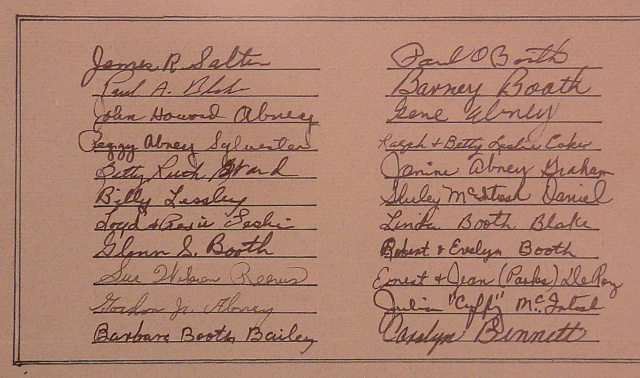 James R. Salter
Paul A. Blake
John Howard Abney
Peggy Abney Sylvester
Betty Ruth Ward
Billy Lessley
Loyd & Leslie
Glenn S. Booth
Sue Wilson Reeves
Gordon Jr. Abney
Barbara Booth Bailey
Paul O Booth
Barney Booth
Gene Abney
Ralph & Betty Leslie Coker
Janine Abney Graham
Shirley McIntosh Daniel
Linda Booth Blake
Robert & Evelyn Booth
Ernest & Jean (Parks) DeRoy
Julian "Cuffy" McIntosh
Carolyn Bennett